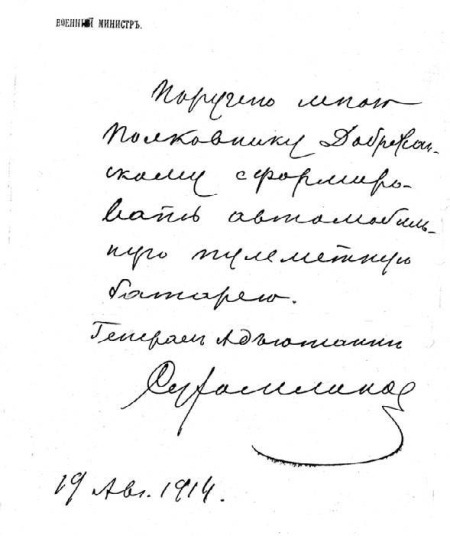 ВОЕННЫЙ МИНИСТРЪ.
Поручено мною
Полковнику Добржан-
скому сформиро-
вать автомобиль-
ную пулеметную
батарею.
Генералъ Адъютантъ
Сухомлинов
19 Авг. 1914.